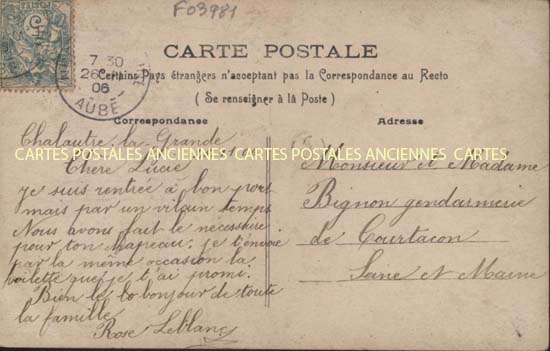 F03981
5
7 30
26
06
AUBE
CARTE POSTALE
Certains Pays étrangers n'acceptant pas la Correspondance au Recto
( Se renseigner à la Poste )
Correspondance
Chalautre-la-Grande
CARTES POSTALES ANCIENNES CARTES POSTALES ANCIENNES CARTES
Chère Lucie
je suis rentrée à bon port
mais par un vilain temps
Nous avons fait le nécessaire
pour ton chapeau. je t'envoie
par la même occasion la
voilette que je t'ai promi.
Bien le bonjour de toute
la famille
Rose Leblanc
Adresse
Monsieur et Madame
Bignon gendarmerie
de Courtacon
Seine et Marne